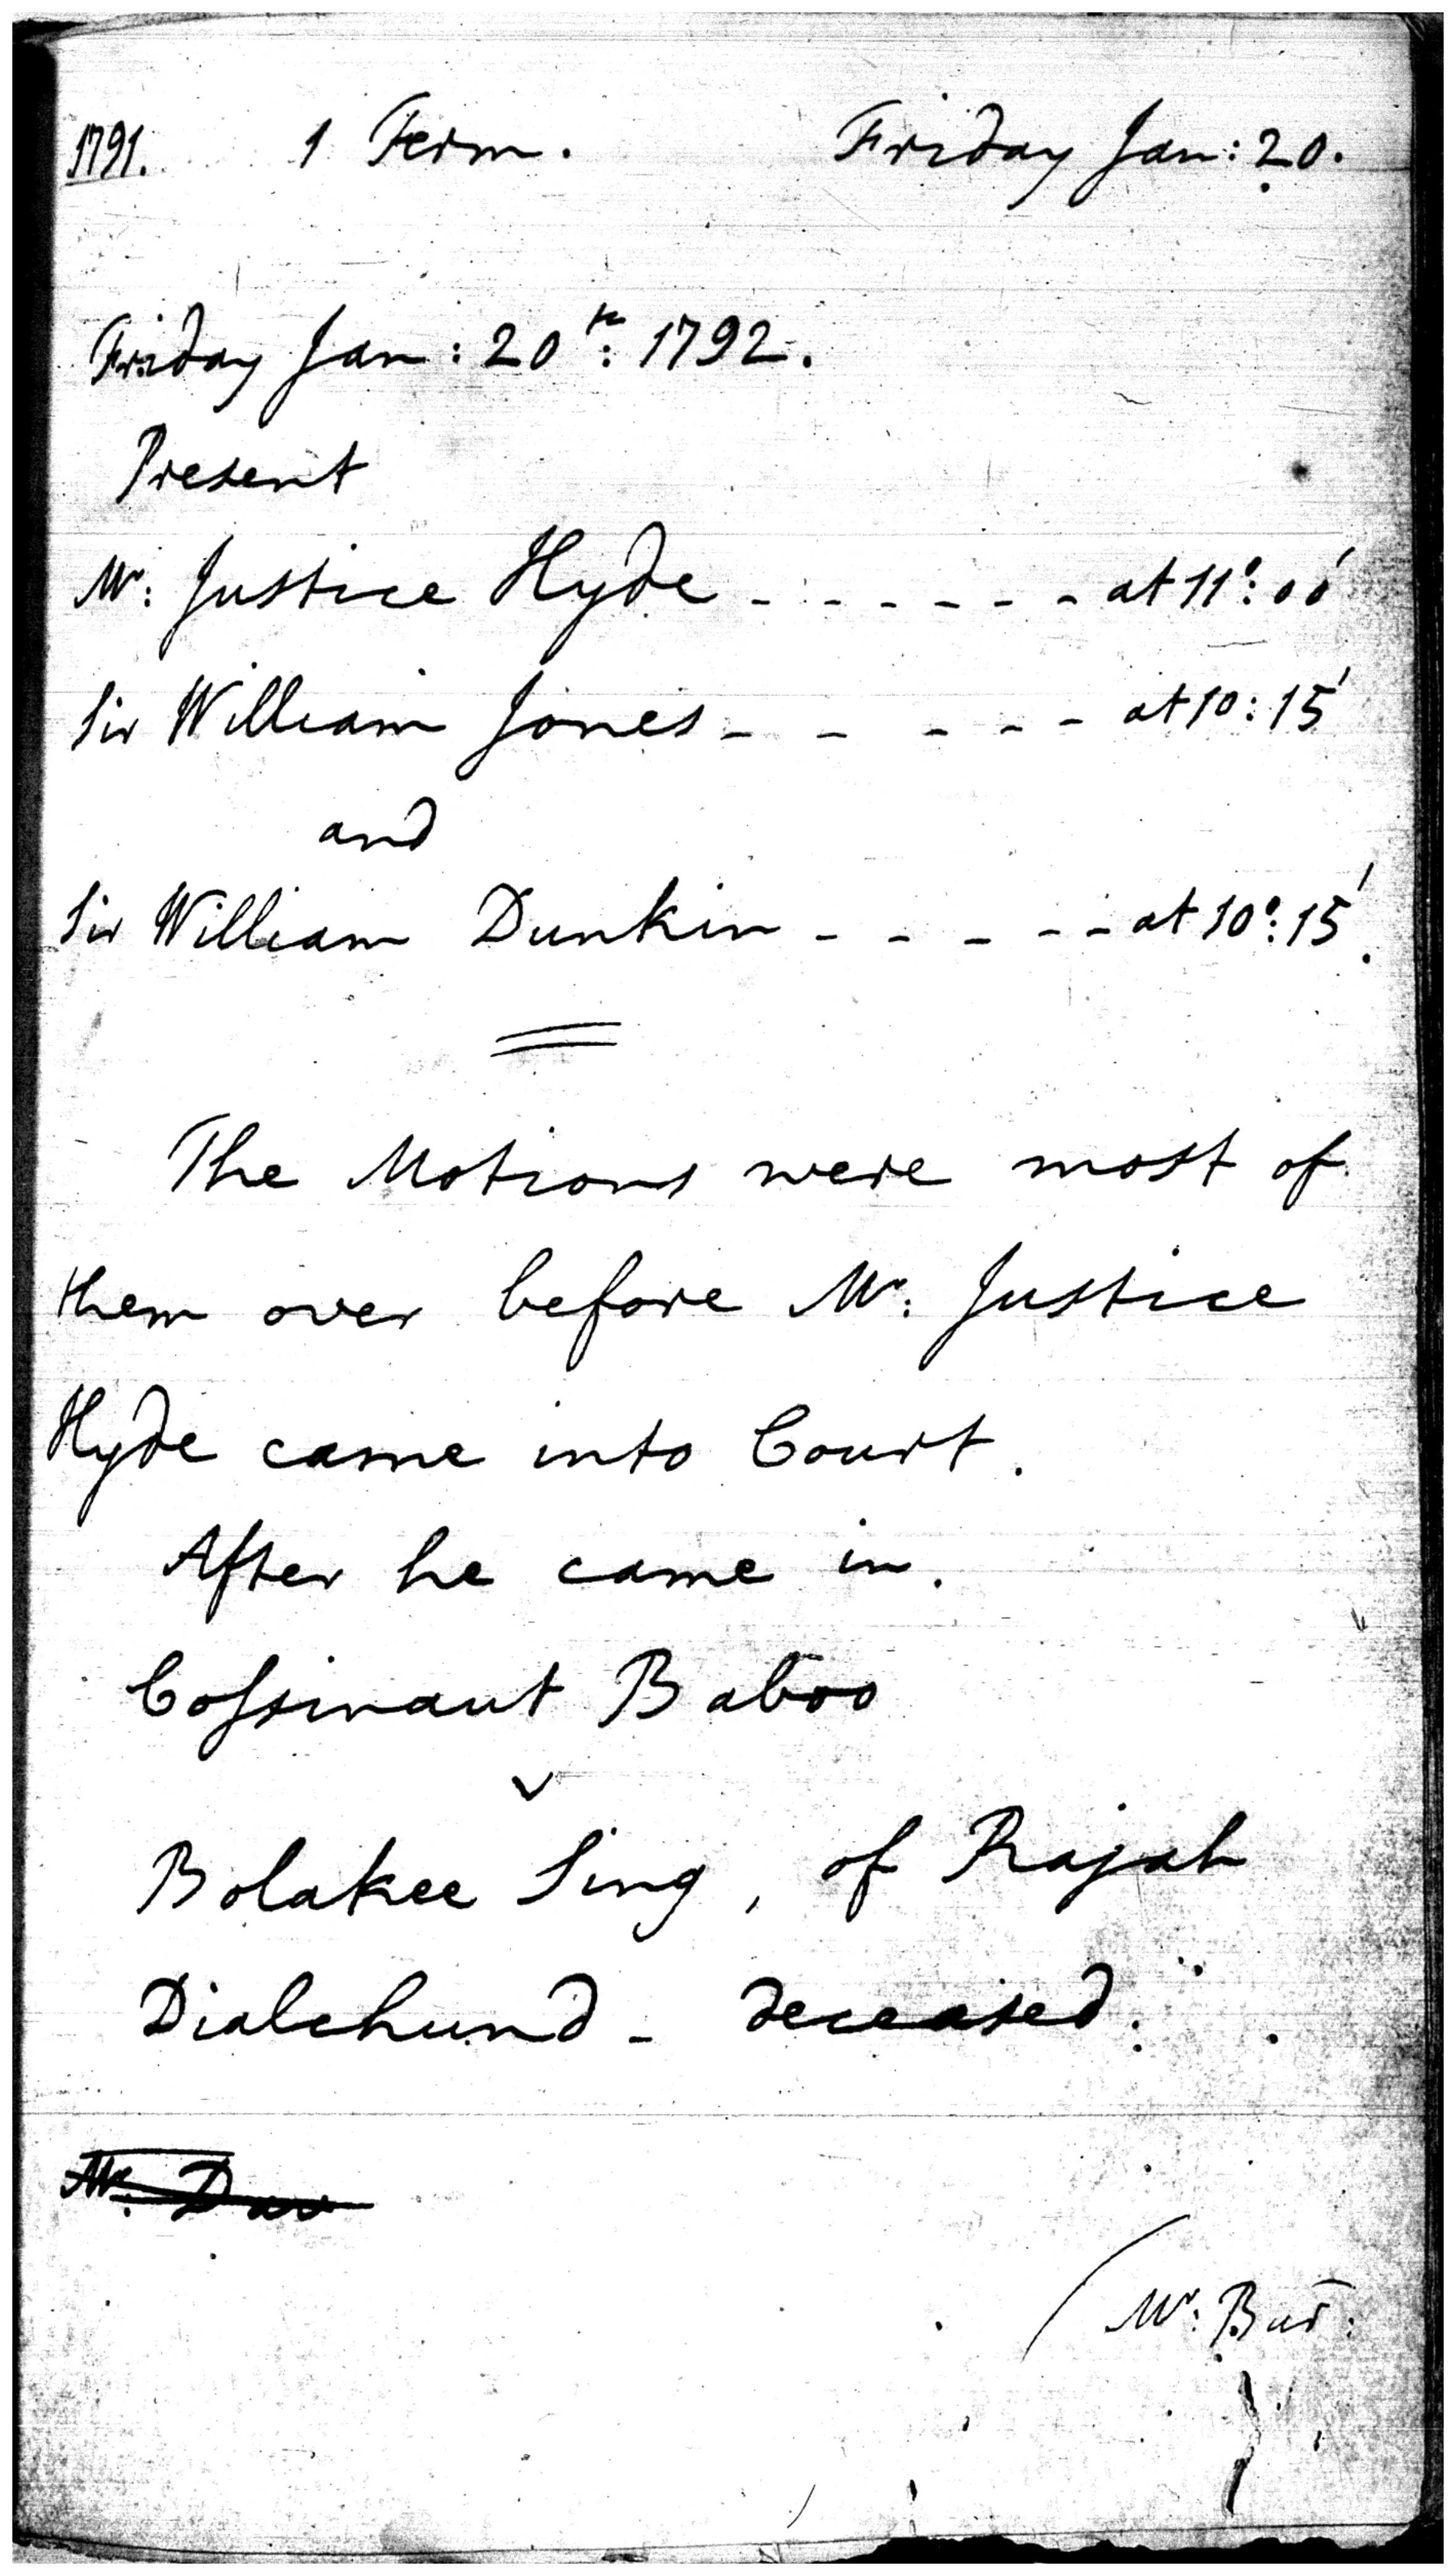 1791. 1 Term. Friday Jan: 20.
Friday Jan: 20th: 1792.
Present
Mr: Justice Hyde - - - - - - - at 11°: 00'
Sir William Jones - - - - - at 10: 15'
and
Sir William Dunkin - - - - - at 10°: 15'.
The Motions were most of
them over before Mr: Justice
Hyde came into Court.
After he came in.
Cossinaut Baboo
v
Bolakee Sing, of Rajah
Dialchund - deceased.
Mr. Dav
(Mr: Bur: